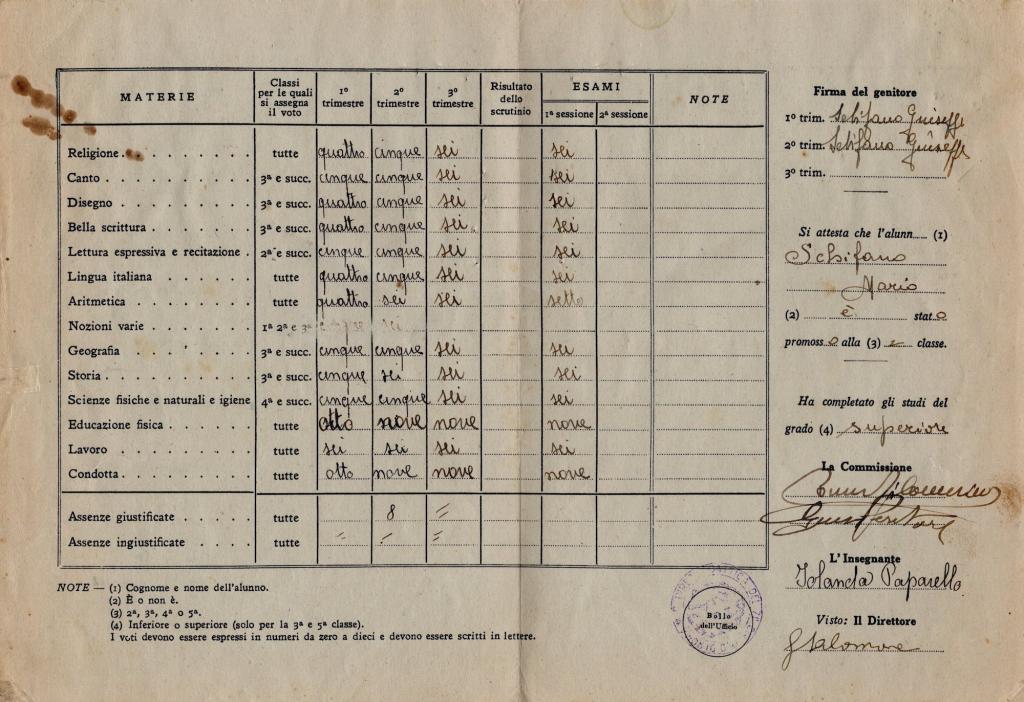 MATERIE
Classi per le quali si assegna il voto
1º trimestre
2º trimestre
3º trimestre
Risultato dello scrutinio
ESAMI
1ª sessione 2ª sessione
NOTE
Religione tutte quattro cinque sei sei
Canto 3ª e succ. cinque cinque sei sei
Disegno 3ª e succ. quattro cinque sei sei
Bella scrittura 3ª e succ. quattro cinque sei sei
Lettura espressiva e recitazione 2ª e succ. cinque cinque sei sei
Lingua italiana tutte quattro cinque sei sei
Aritmetica tutte quattro sei sei sette
Nozioni varie 1ª 2ª e 3ª
Geografia 3ª e succ. cinque cinque sei sei
Storia 3ª e succ. cinque sei sei sei
Scienze fisiche e naturali e igiene 4ª e succ. cinque cinque sei sei
Educazione fisica tutte otto nove nove nove
Lavoro tutte sei sei sei sei
Condotta tutte otto nove nove nove
Assenze giustificate tutte 8 =
Assenze ingiustificate tutte = = =
NOTE — (1) Cognome e nome dell'alunno.
(2) È o non è.
(3) 2ª, 3ª, 4ª o 5ª.
(4) Inferiore o superiore (solo per la 3ª e 5ª classe).
I voti devono essere espressi in numeri da zero a dieci e devono essere scritti in lettere.
Bollo
dell'Ufficio
Firma del genitore
1º trim. Schifano Guiseppe
2º trim. Schifano Guiseppe
3º trim.
Si attesta che l'alunn (1)
Schifano
Mario
(2) è stato
promosso alla (3) classe.
Ha completato gli studi del
grado (4) superiore
La Commissione
L'Insegnante
Iolanda Paparello
Visto: Il Direttore